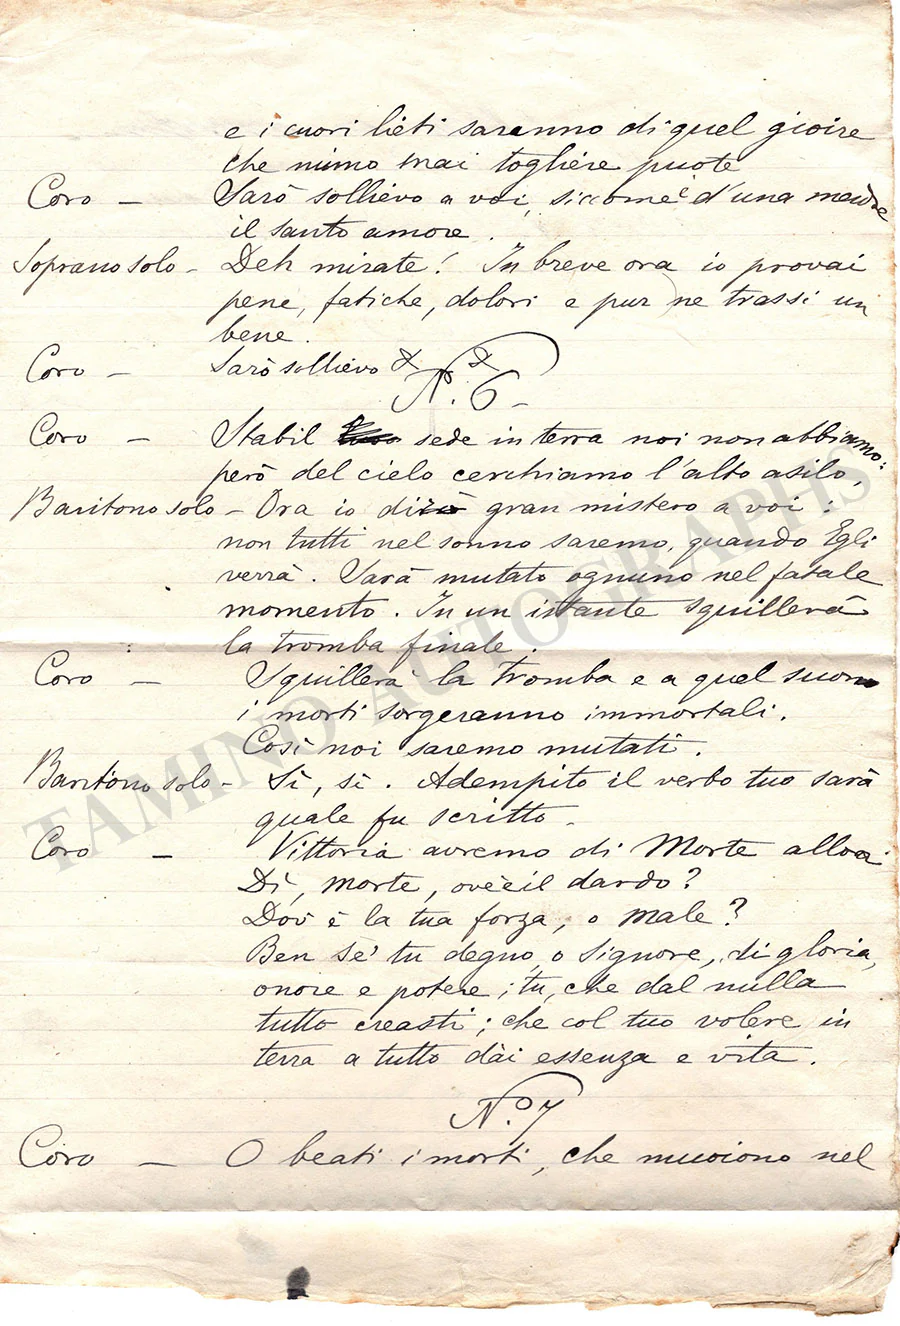 e i cuori lieti saranno di quel gioire
che niuno mai togliere puote
Coro — Sarò sollievo a voi, siccome d'una madre
il santo amore.
Soprano solo - Deh mirate! In breve ora io provai
pene, fatiche, dolori e pur ne trassi un
bene.
Coro — Sarò sollievo & &
N.o 6 -
Coro — Stabil sede in terra noi non abbiamo:
però del cielo cerchiamo l'alto asilo.
Baritono solo - Ora io dirò gran mistero a voi:
non tutti nel sonno saremo, quando Egli
verrà. Sarà mutato ognuno nel fatale
momento. In un istante squillerà
la tromba finale.
Coro — Squillerà la tromba e a quel suono
i morti sorgeranno immortali.
Così noi saremo mutati.
Baritono solo - Sì, sì. Adempito il verbo tuo sarà
quale fu scritto -
Coro — Vittoria avremo di Morte allora
Dì, morte, ov'è il dardo?
Dov'è la tua forza, o Male?
Ben se' tu degno, o Signore, di gloria,
onore e potere; tu, che dal nulla
tutto creasti; che col tuo volere in
terra a tutto dài essenza e vita.
N.o 7
Coro — O beati i morti, che muoiono nel
TAMINO AUTOGRAPHS